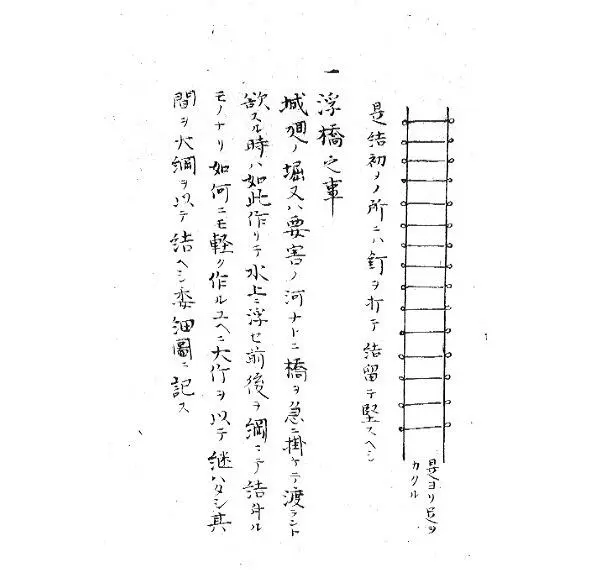 是ヨリ足ヲ
カクル
是結初メノ所ニハ釘ヲ打テ結留テ堅スヘシ
一 浮橋之事
城廻ノ堀又ハ要害ノ河ナトニ橋ヲ急ニ掛ケテ渡ラント
欲スル時ハ如此作リテ水上ニ浮セ前後ヲ綱ニテ結斗ル
モノナリ如何ニモ軽ク作ルユヘニ大竹ヲ以テ継ハタシ其
間ヲ大綱ヲ以テ結ヘシ委細圖ニ記ス